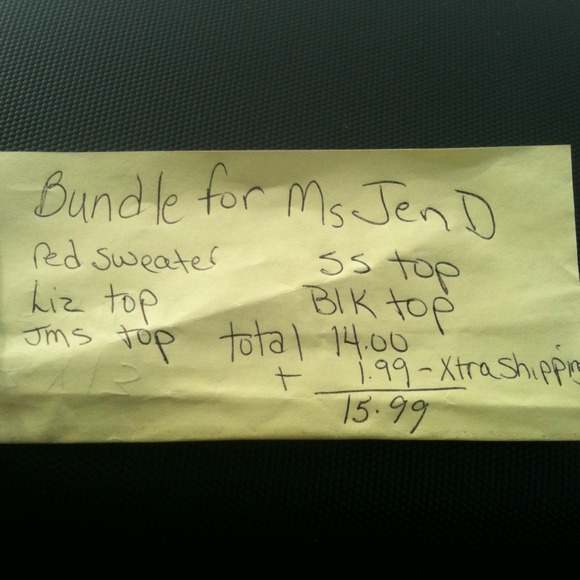 Bundle for Ms Jen D
Red sweater SS top
Liz top Blk top
Jms top total 14.00
+ 1.99 - Xtra Shipping
15.99